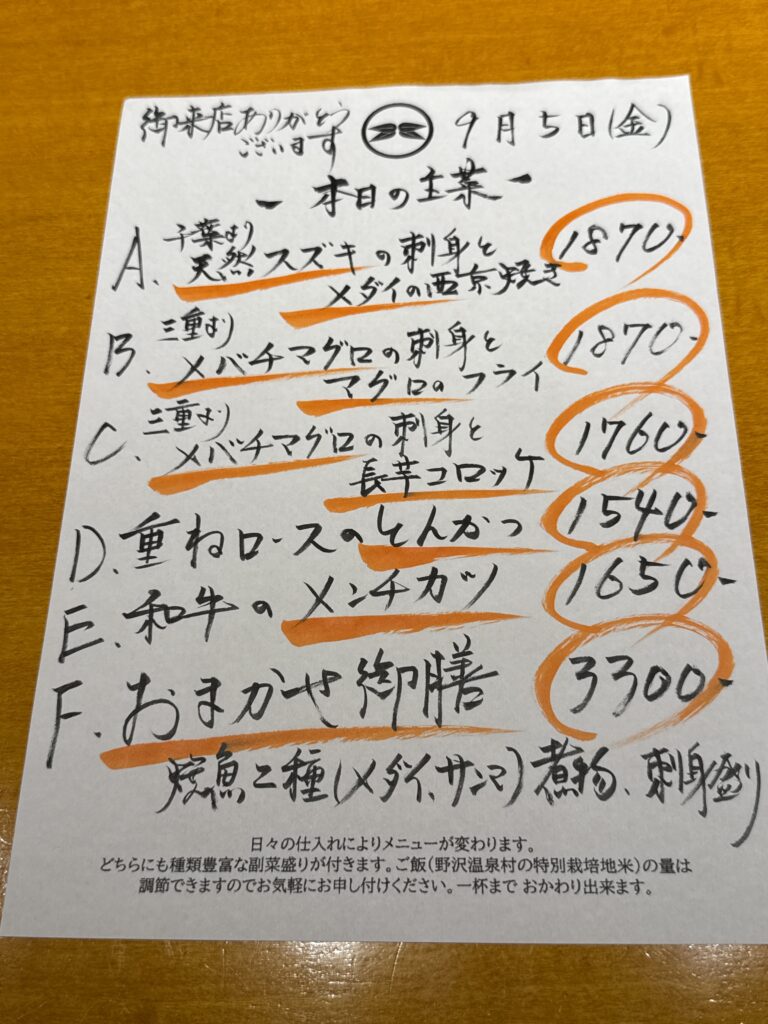 御来店ありがとう
ございます
9月5日(金)
- 本日の主菜 -
A. 千葉より
天然スズキの刺身と
メダイの西京焼き
1870-
B. 三重より
メバチマグロの刺身と
マグロのフライ
1870-
C. 三重より
メバチマグロの刺身と
長芋コロッケ
1760-
D. 重ねロースのとんかつ 1540-
E. 和牛のメンチカツ 1650-
F. おまかせ御膳 3300-
焼魚二種(メダイ、サンマ)煮物、刺身盛り
日々の仕入れによりメニューが変わります。
どちらにも種類豊富な副菜盛りが付きます。ご飯(野沢温泉村の特別栽培地米)の量は
調節できますのでお気軽にお申し付けください。一杯まで おかわり出来ます。